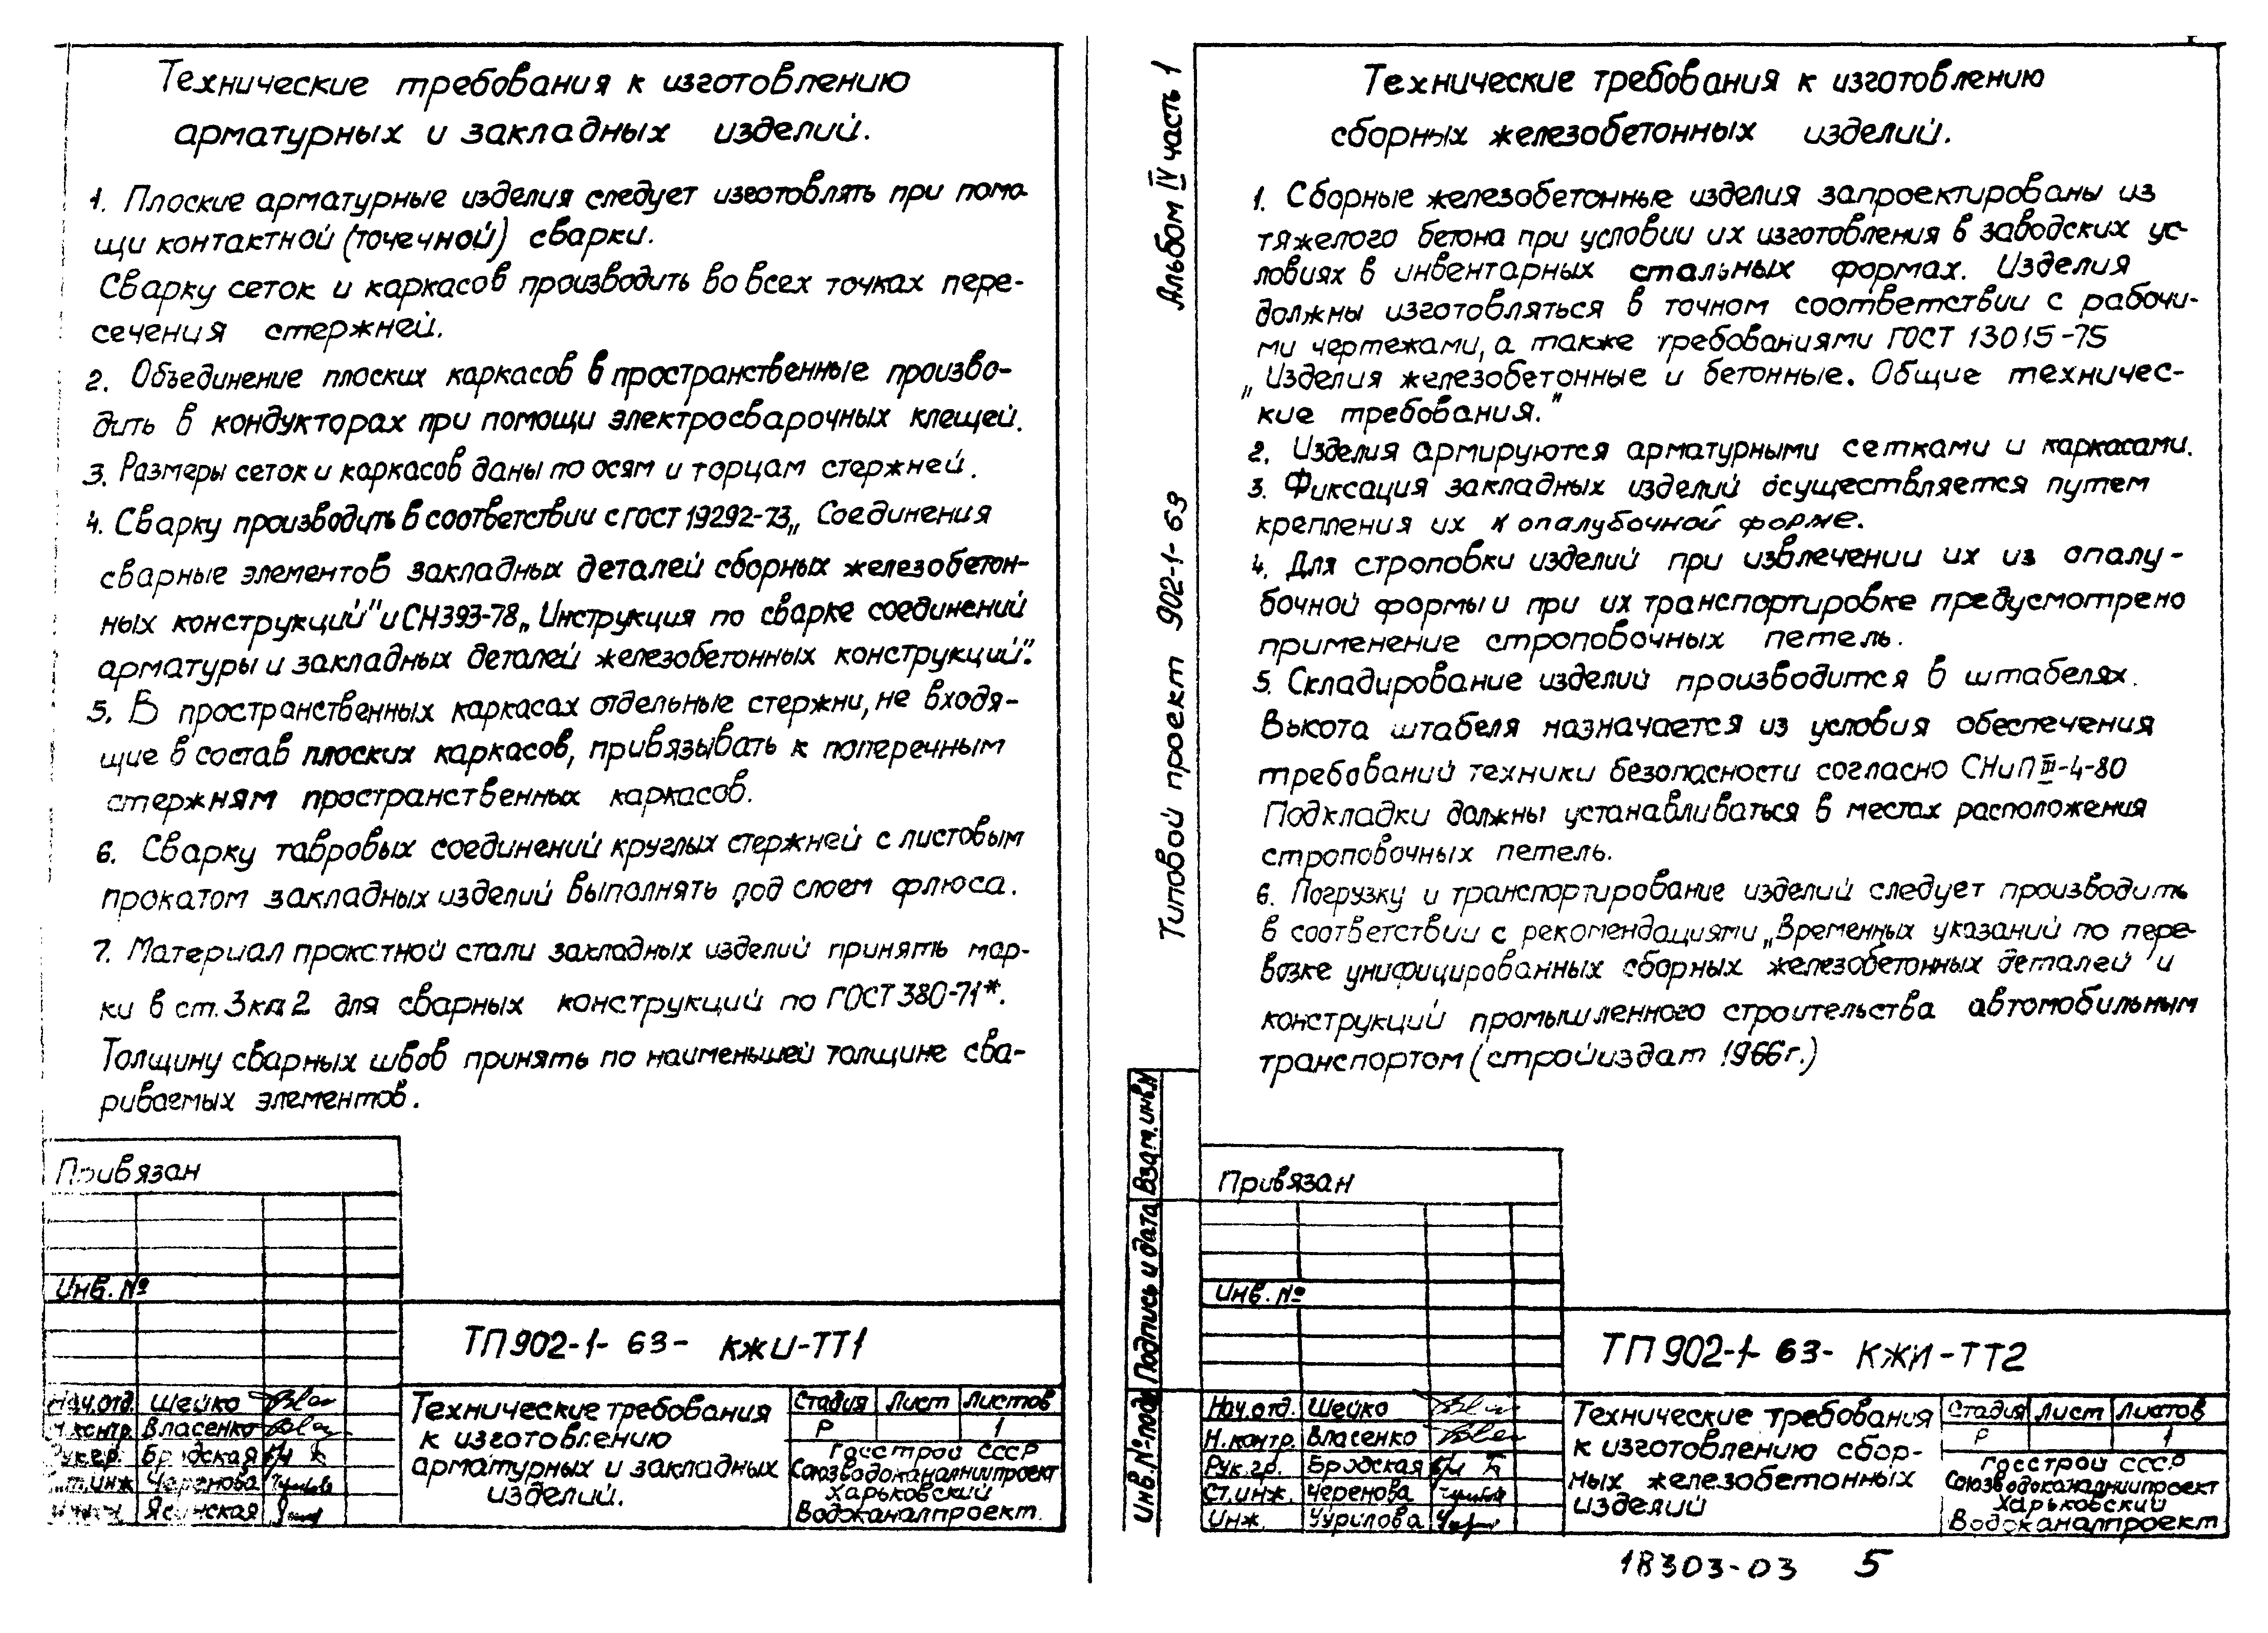 Технические требования к изготовлению
арматурных и закладных изделий.
1. Плоские арматурные изделия следует изготовлять при помо
щи контактной (точечной) сварки.
Сварку сеток и каркасов производить во всех точках пере-
сечения стержней.
2. Объединение плоских каркасов в пространственные произво-
дить в кондукторах при помощи электросварочных клещей.
3. Размеры сеток и каркасов даны по осям и торцам стержней.
4. Сварку производить в соответствии с гост 19292-73 „Соединения
сварные элементов закладных деталей сборных железобетон-
ных конструкций" и СН 393-78 „Инструкция по сварке соединений
арматуры и закладных деталей железобетонных конструкций".
5. В пространственных каркасах отдельные стержни, не входя-
щие в состав плоских каркасов, привязывать к поперечным
стержням пространственных каркасов.
6. Сварку тавровых соединений круглых стержней с листовым
прокатом закладных изделий выполнять под слоем флюса.
7. Материал прокатной стали закладных изделий принять мар-
ки в ст. 3кп2 для сварных конструкций по ГОСТ 380-71*.
Толщину сварных швов принять по наименьшей толщине сва-
риваемых элементов.
Привязан
Инв. №
ТП 902-1-63- КЖИ-ТТ1
Нач.отд. Шейко
Н.контр. Власенко
Рук.гр. Бродская
Ст.инж. Черенова
Ясинская
Технические требования
к изготовлению
арматурных и закладных
изделий.
Стадия Лист Листов
Р 1
Госстрой СССР
Союзводоканалниипроект
Харьковский
Водоканалпроект.
Альбом IV часть 1
Типовой проект 902-1-63
Взам.инв.N
Подпись и дата
Инв.№ подл
Технические требования к изготовлению
сборных железобетонных изделий.
1. Сборные железобетонные изделия запроектированы из
тяжелого бетона при условии их изготовления в заводских ус-
ловиях в инвентарных стальных формах. Изделия
должны изготовляться в точном соответствии с рабочи-
ми чертежами, а также требованиями ГОСТ 13015-75
„Изделия железобетонные и бетонные. Общие техничес-
кие требования."
2. Изделия армируются арматурными сетками и каркасами.
3. Фиксация закладных изделий осуществляется путем
крепления их к опалубочной форме.
4. Для строповки изделий при извлечении их из опалу-
бочной формы и при их транспортировке предусмотрено
применение строповочных петель.
5. Складирование изделий производится в штабелях.
Высота штабеля назначается из условия обеспечения
требований техники безопасности согласно СНиП III-4-80
Подкладки должны устанавливаться в местах расположения
строповочных петель.
6. Погрузку и транспортирование изделий следует производить
в соответствии с рекомендациями „Временных указаний по пере-
возке унифицированных сборных железобетонных деталей и
конструкций промышленного строительства автомобильным
транспортом (стройиздат 1966г.)
Привязан
Инв. №
ТП 902-1-63- КЖИ-ТТ2
Нач.отд. Шейко
Н.контр. Власенко
Рук.гр. Бродская
Ст.инж. Черенова
Инж. Чурилова
Технические требования
к изготовлению сбор-
ных железобетонных
изделий
Стадия Лист Листов
Р 1
Госстрой СССР
Союзводоканалниипроект
Харьковский
Водоканалпроект
18303-03 5